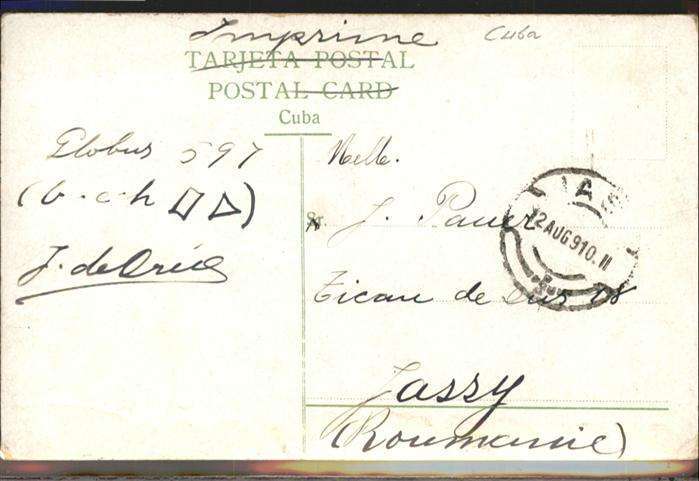 Imprime
Cuba
TARJETA POSTAL
POSTAL CARD
Cuba
Globus 597
(b-c-h
J. de
Melle.
Sr. J. Pauer
de Sus 18
Jassy
(Roumanie)
IAS
12 AUG 910. 11